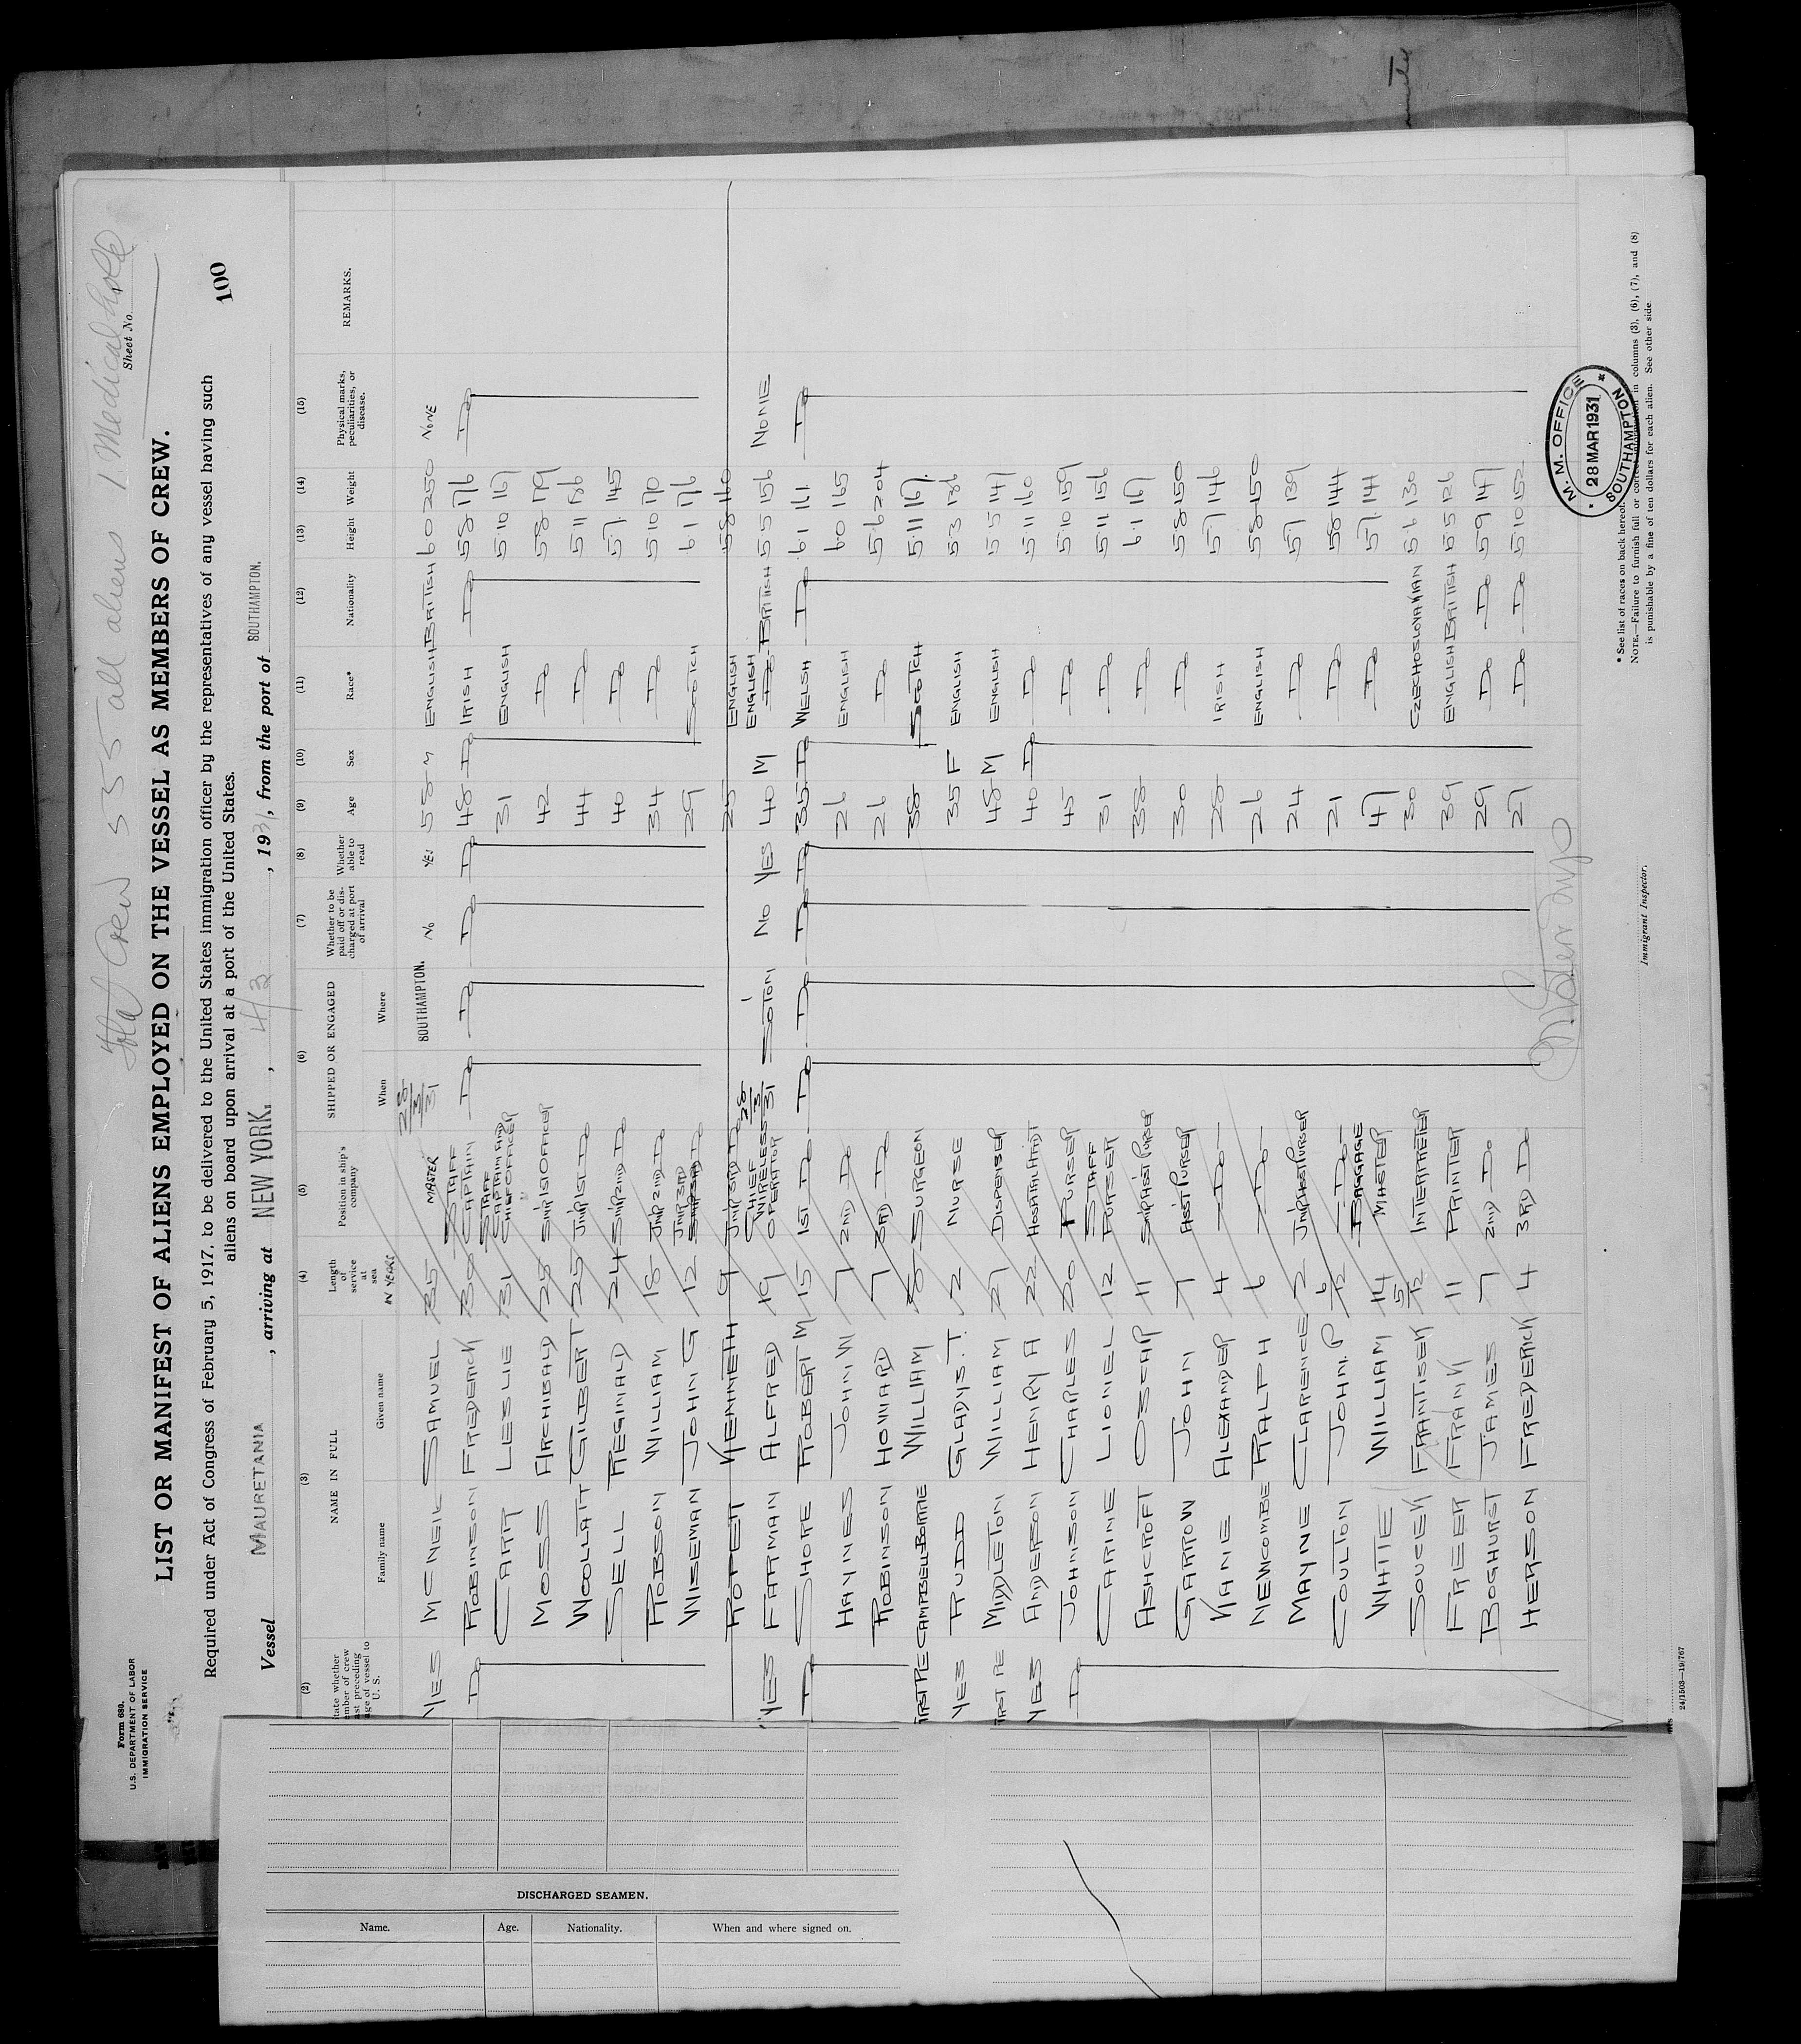 Total Crew 555 all aliens 1 Medical hold
Form 680.
U.S. DEPARTMENT OF LABOR
IMMIGRATION SERVICE
Sheet No.
LIST OR MANIFEST OF ALIENS EMPLOYED ON THE VESSEL AS MEMBERS OF CREW.
100
Required under Act of Congress of February 5, 1917, to be delivered to the United States immigration officer by the representatives of any vessel having such
aliens on board upon arrival at a port of the United States.
Vessel MAURETANIA, arriving at NEW YORK., 4/3, 1931, from the port of SOUTHAMPTON.
(2) (3) (4) (5) (6) (7) (8) (9) (10) (11) (12) (13) (14) (15)
NAME IN FULL
Family name Given name
Length of service at sea IN YEARS
Position in ship's company
SHIPPED OR ENGAGED
When Where
Whether to be paid off or discharged at port of arrival
Whether able to read
Age Sex Race* Nationality Height Weight
Physical marks, peculiarities, or disease.
REMARKS.
YES MCNEIL SAMUEL 35 MASTER 28/3/31 SOUTHAMPTON. No YES 58 M ENGLISH BRITISH 6 0 250 NONE
Do ROBINSON FREDERICK 30 STAFF CAPTAIN Do Do Do Do 48 Do IRISH Do 5 8 176 Do
CARR LESLIE 31 STAFF CAPTAIN AND CHIEF OFFICER 31 ENGLISH 5 10 167
MOSS ARCHIBALD 25 SNR 1ST OFFICER 42 Do 5 8 179
WOOLLATT GILBERT 25 JNR 1ST Do 44 Do 5 11 186
SELL REGINALD 24 SNR 2ND Do 40 Do 5 7 145
ROBSON WILLIAM 18 JNR 2ND Do 34 Do 5 10 170
WISEMAN JOHN G 12 JNR 3RD Do 29 SCOTCH 6 1 176
ROPER KENNETH 9 JNR 3RD Do 25 ENGLISH 5 8 160
YES FARMAN ALFRED 19 CHIEF WIRELESS OPERATOR 28/3/31 S'OTON NO YES 40 M ENGLISH BRITISH 5 5 156 NONE
Do SHORE ROBERT M 15 1ST Do Do Do Do Do 35 Do WELSH Do 6 1 161 Do
HAYNES JOHN W 7 2ND Do 26 ENGLISH 6 0 165
ROBINSON HOWARD 7 3RD Do 26 Do 5 6 204
FIRST PE CAMPBELL-BORRIE WILLIAM SURGEON 38 SCOTCH 5 11 167
YES RUDD GLADYS. T. 2 NURSE 35 F ENGLISH 5 3 136
FIRST PE MIDDLETON WILLIAM 27 DISPENSER 48 M ENGLISH 5 5 147
YES ANDERSON HENRY A 22 HOSPITAL ATTDT 40 Do Do 5 11 160
Do JOHNSON CHARLES 20 PURSER 45 Do 5 10 159
CARINE LIONEL 12 STAFF PURSER 31 Do 5 11 156
ASHCROFT OSCAR 11 SNR ASST PURSER 38 Do 6 1 167
GARROW JOHN 7 ASST PURSER 30 Do 5 8 150
KANE ALEXANDER 4 Do 28 IRISH 5 7 146
NEWCOMBE RALPH 6 Do 26 ENGLISH 5 8 150
MAYNE CLARENCE 2 JNR ASST PURSER 24 Do 5 7 139
COULTON JOHN. P 6/12 Do 21 Do 5 8 144
WHITE WILLIAM 14 BAGGAGE MASTER 47 Do 5 7 141
SOUCEK FRANTISEK 5/12 INTERPRETER 30 CZECHOSLOVAKIAN 5 6 130
FREER FRANK 11 PRINTER 39 ENGLISH BRITISH 5 5 126
BOGHURST JAMES 7 2ND Do 29 Do Do 5 9 147
HERSON FREDERICK 4 3RD Do 27 Do Do 5 10 152
M. M. OFFICE
28 MAR 1931
SOUTHAMPTON
Immigrant Inspector.
* See list of races on back hereof.
NOTE.—Failure to furnish full or correct information in columns (3), (6), (7), and (8)
is punishable by a fine of ten dollars for each alien. See other side.
24/1503—19/767
DISCHARGED SEAMEN.
Name. Age. Nationality. When and where signed on.